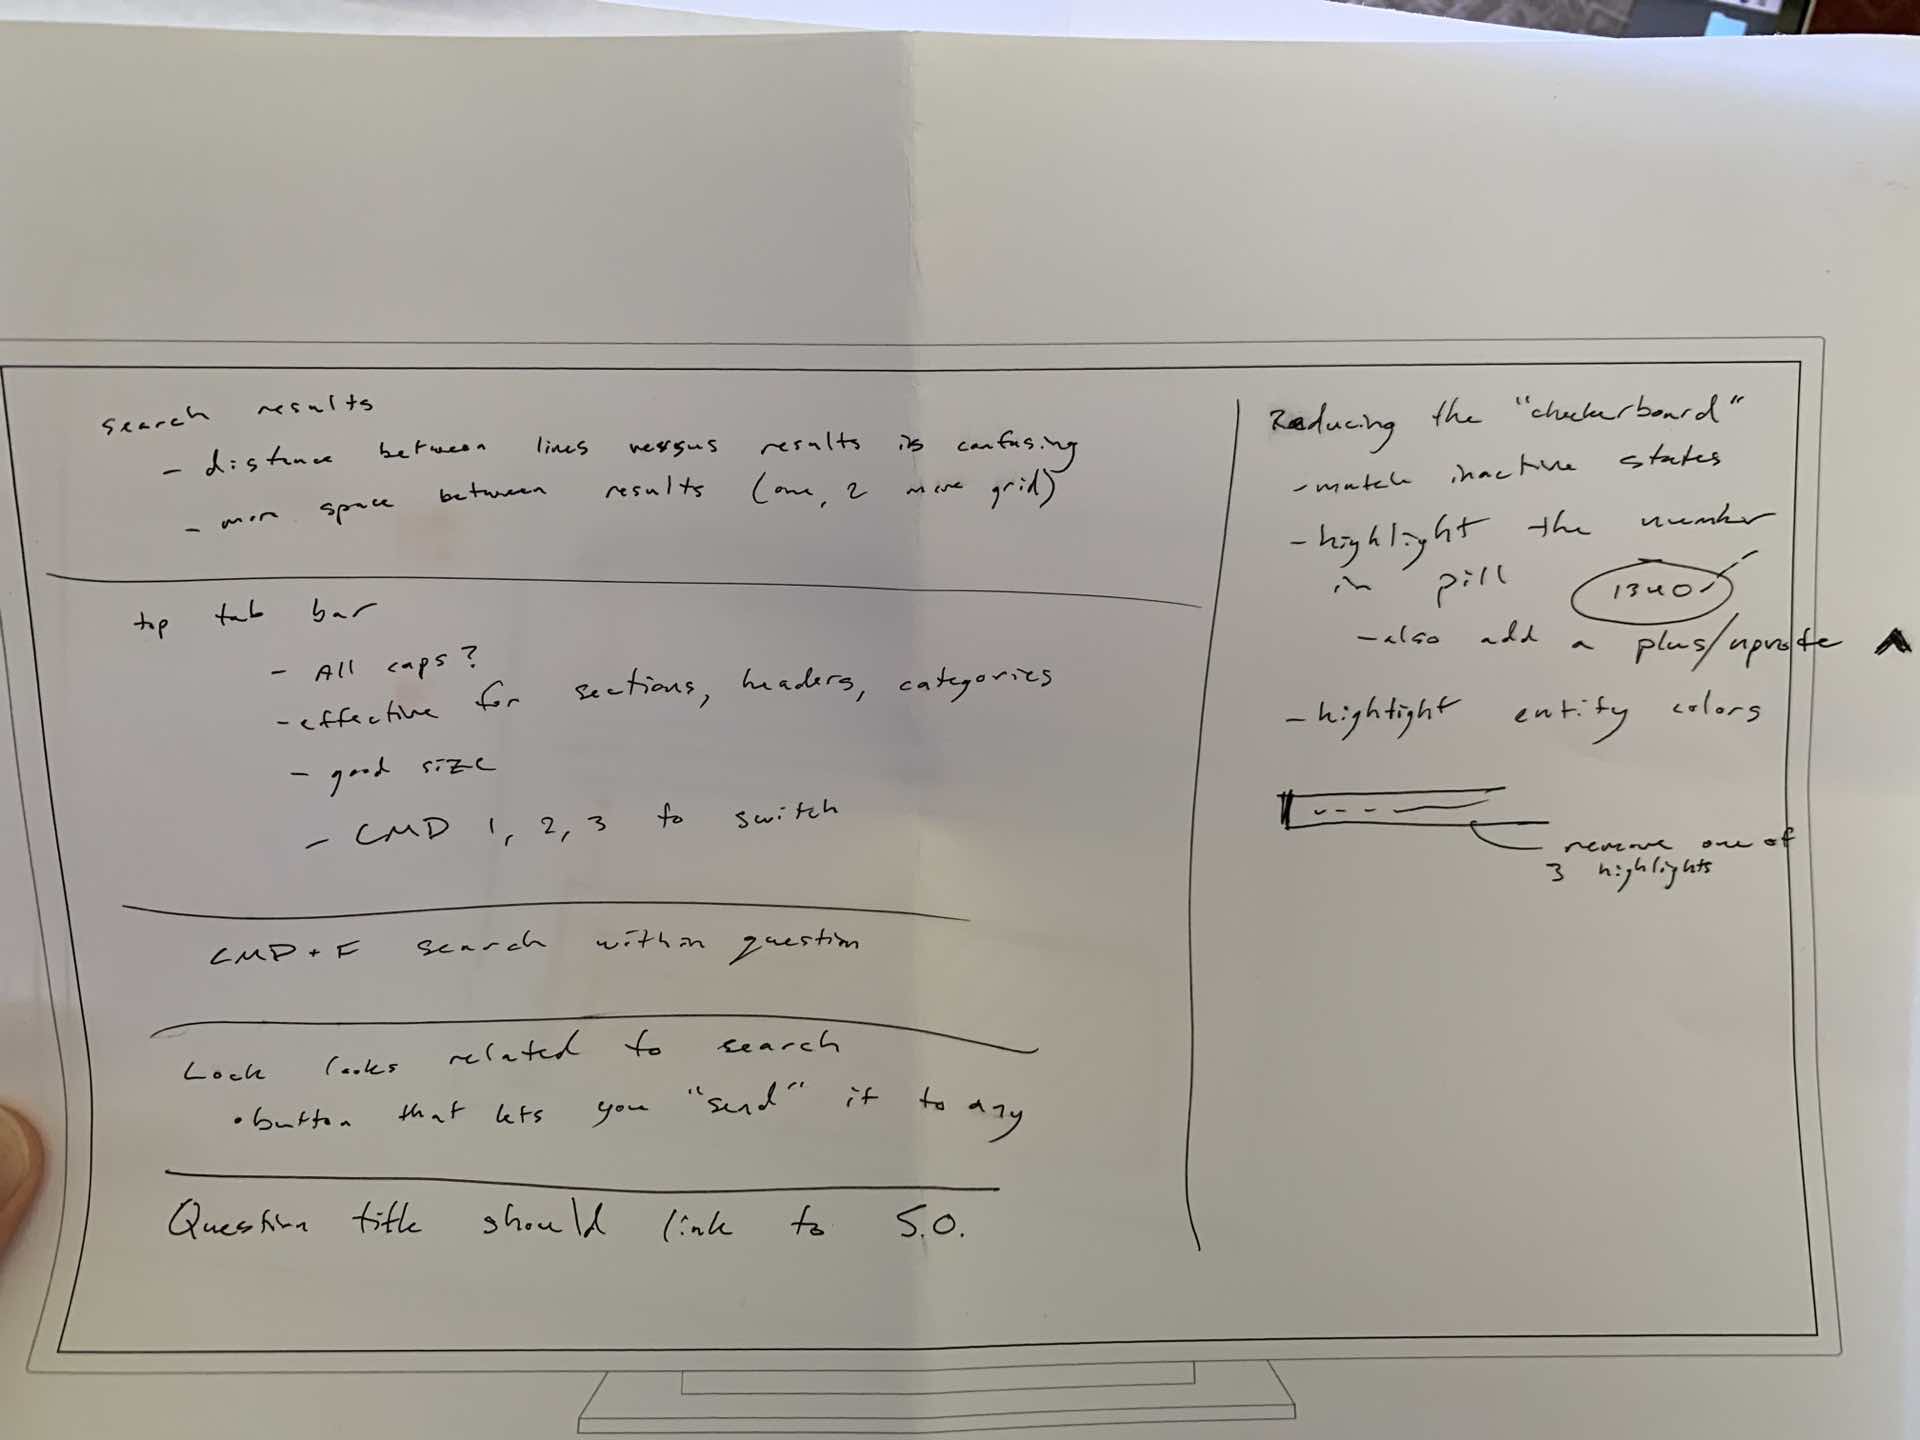 search results
- distance between lines verssus results is confusing
- more space between results (one, 2 more grid)
top tab bar
- All caps?
- effective for sections, headers, categories
- good size
- CMD 1, 2, 3 to switch
CMD + F search within question
Lock looks related to search
• button that lets you "send" it to any
Question title should link to S.O.
Reducing the "checkerboard"
- match inactive states
- highlight the number
in pill 1340
- also add a plus/upvote
- hightight entity colors
remove one of
3 highlights